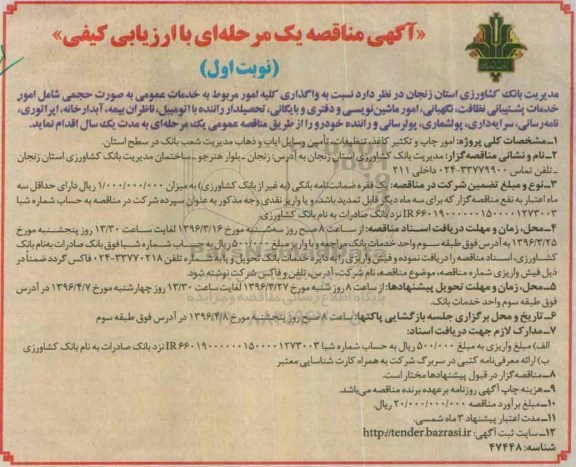 «آگهی مناقصه یک مرحله‌ای با ارزیابی کیفی»
(نوبت اول)
مدیریت بانک کشاورزی استان زنجان در نظر دارد نسبت به واگذاری کلیه امور مربوط به خدمات عمومی به صورت حجمی شامل امور
خدمات پشتیبانی نظافت، نگهبانی، امور ماشین‌نویسی و دفتری و بایگانی، تحصیلدار راننده با اتومبیل، ناظران بیمه، آبدارخانه، اپراتوری،
نامه‌رسانی، سرایه‌داری، پولشماری، پولرسانی و راننده خودرو را از طریق مناقصه عمومی یک مرحله‌ای به مدت یک سال اقدام نماید.
۱ــ مشخصات کلی پروژه: امور چاپ و تکثیر کاغذ، تنظیفات، تأمین وسایل ایاب و ذهاب مدیریت شعب بانک در سطح استان.
۲ــ نام و نشانی مناقصه‌گزار: مدیریت بانک کشاورزی استان زنجان به آدرس: زنجان ــ بلوار هنرجو ــ ساختمان مدیریت بانک کشاورزی استان زنجان
ــ تلفن تماس ۳۳۷۷۹۹۰۰-۰۲۴ داخلی ۲۱۱
۳ــ نوع و مبلغ تضمین شرکت در مناقصه: یک فقره ضمانت‌نامه بانکی (به غیر از بانک کشاورزی) به میزان ۱/۰۰۰/۰۰۰/۰۰۰ ریال دارای حداقل سه
ماه اعتبار به نفع مناقصه‌گزار که برای سه ماه دیگر قابل تمدید باشد، و یا واریز نقدی وجه مذکور به عنوان سپرده شرکت در مناقصه به حساب شماره شبا
IR ۶۶۰۱۹۰۰۰۰۰۰۰۱۵۰۰۰۰۱۲۷۳۰۰۳ نزد بانک صادرات به نام بانک کشاورزی.
۴ــ محل، زمان و مهلت دریافت اسناد مناقصه: از ساعت ۸ صبح روز سه‌شنبه مورخ ۱۳۹۶/۳/۱۶ لغایت ساعت ۱۳/۳۰ روز پنجشنبه مورخ
۱۳۹۶/۳/۲۵ به آدرس فوق طبقه سوم واحد خدمات بانک مراجعه و با واریز مبلغ ۵۰۰/۰۰۰ ریال به حساب شماره شبا فوق بانک صادرات به‌نام بانک
کشاورزی، اسناد مناقصه را دریافت نموده و فیش واریزی را به دایره خدمات بانک تحویل و یا به شماره تلفن ۳۳۷۷۰۲۱۸-۰۲۴ فاکس گردد ضمناً در
ذیل فیش واریزی شماره مناقصه، موضوع مناقصه، نام شرکت، آدرس، تلفن و فاکس شرکت نوشته شود.
۵ــ محل، زمان و مهلت تحویل پیشنهادها: از ساعت ۸ روز شنبه مورخ ۱۳۹۶/۳/۲۷ لغایت ساعت ۱۳/۳۰ روز چهارشنبه مورخ ۱۳۹۶/۴/۷ در آدرس
فوق طبقه سوم واحد خدمات بانک.
۶ــ تاریخ و محل برگزاری جلسه بازگشایی پاکتها: ساعت ۸ صبح روز پنجشنبه مورخ ۱۳۹۶/۴/۸ در آدرس فوق طبقه سوم
۷ــ مدارک لازم جهت دریافت اسناد:
الف) مبلغ واریزی به مبلغ ۵۰۰/۰۰۰ ریال به حساب شماره شبا IR ۶۶۰۱۹۰۰۰۰۰۰۰۱۵۰۰۰۰۱۲۷۳۰۰۳ نزد بانک صادرات به نام بانک کشاورزی
ب) ارائه معرفی‌نامه کتبی در سربرگ شرکت به همراه کارت شناسایی معتبر
۸ــ مناقصه‌گزار در قبول پیشنهادها مختار است.
۹ــ هزینه چاپ آگهی روزنامه برعهده برنده مناقصه می‌باشد.
۱۰ــ مبلغ برآورد مناقصه ۲۰/۰۰۰/۰۰۰/۰۰۰ ریال.
۱۱ــ مدت اعتبار پیشنهاد ۳ ماه شمسی.
۱۲ــ سایت ثبت آگهی: http://tender.bazrasi.ir
شناسه: ۴۷۴۴۸